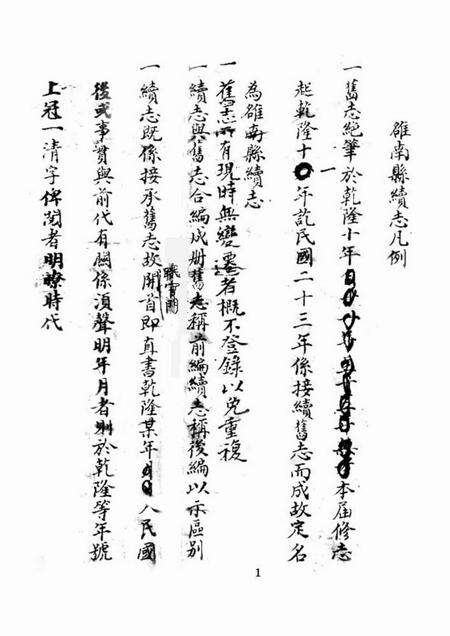 雒南縣續志凡例
一舊志絕筆於乾隆十年本届修志
起乾隆十一年訖民國二十三年係接續舊志而成故定名
為雒南縣續志
一舊志所有現時無變遷者概不登錄以免重複
一續志與舊志合編成册舊志稱前編續志稱後編以示區別
一續志既係接承舊志故開首即直書乾隆某年入民國
後或事實與前代有關係須聲明年月者則於乾隆等年號
上冠一清字俾閱者明瞭時代
1